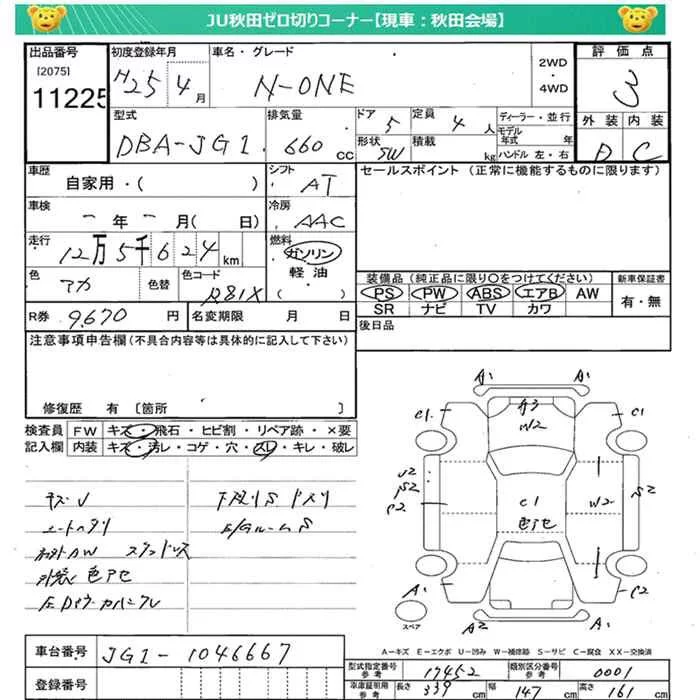 JU秋田ゼロ切りコーナー【現車：秋田会場】
出品番号 初度登録年月 車名・グレード 2WD・4WD 評価点
[2075]
11225 H25 4月 N-ONE 3
型式 排気量 ドア 5 定員 4人 ディーラー・並行 外装 内装
DBA-JG1 660 CC 形状 SW 積載 kg モデル年式 年 ハンドル 左・右 D C
車歴 シフト セールスポイント (正常に機能するものに限ります)
自家用・( ) AT
車検 冷房
年 月( 日) AAC
走行 燃料
12万5千624km ガソリン
軽油
・( )
色 色替 色コード 装備品 (純正品に限り○をつけてください) 新車保証書
アカ R81X PS PW ABS エアB AW 有・無
SR ナビ TV カワ
R券 9,670円 名変期限 月 日 後日品
注意事項申告欄(不具合内容等は具体的に記入して下さい)
修復歴 有 〔箇所 〕
検査員 FW キズ・飛石・ヒビ割・リペア跡・×要
記入欄 内装 キズ・汚レ・コゲ・穴・スレ・キレ・破レ
キズU
シートヘタリ
社外AW スタッドレス
外装色アセ
下廻りS
E/GルームS
A1 A1
C1 A3 C1
W2
C2 C1 W2
色アセ
A1 C2
A2 A1
スペア
A－キズ E－エクボ U－凹み W－補修跡 S－サビ C－腐食 XX－交換済
車台番号 JG1-1046667
登録番号
型式指定番号 参考 17452 類別区分番号 参考 0001
車庫証明用 参考 長さ 339 cm 幅 147 cm 高さ 161 cm